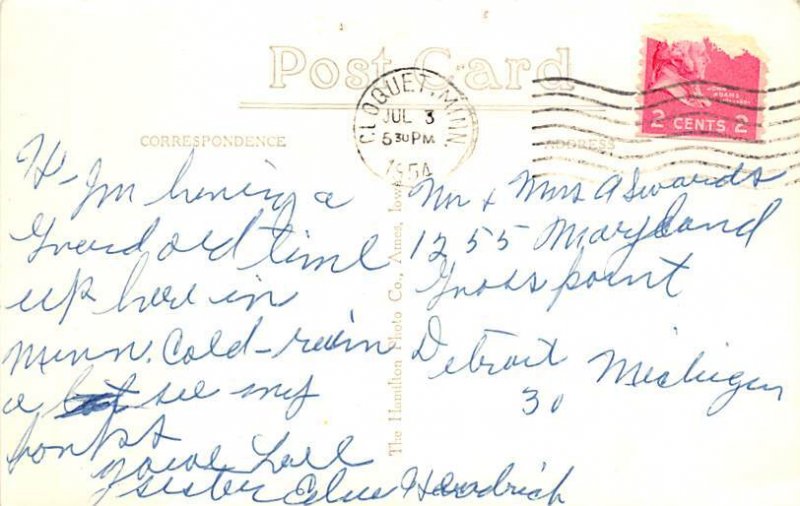 Post Card
CLOQUET, MINN.
JUL 3
5 30 PM
1954
JOHN
ADAMS
2 CENTS 2
CORRESPONDENCE
ADDRESS
Hi- I'm having a
Grand old time
up here in
Minn. Cold-rain
a see my
Yours Love
sister Hendrich
The Hamilton Photo Co., Ames, Iowa
Mr & Mrs A Swards
1255 Maryland
Gross point
Detroit Michigan
30